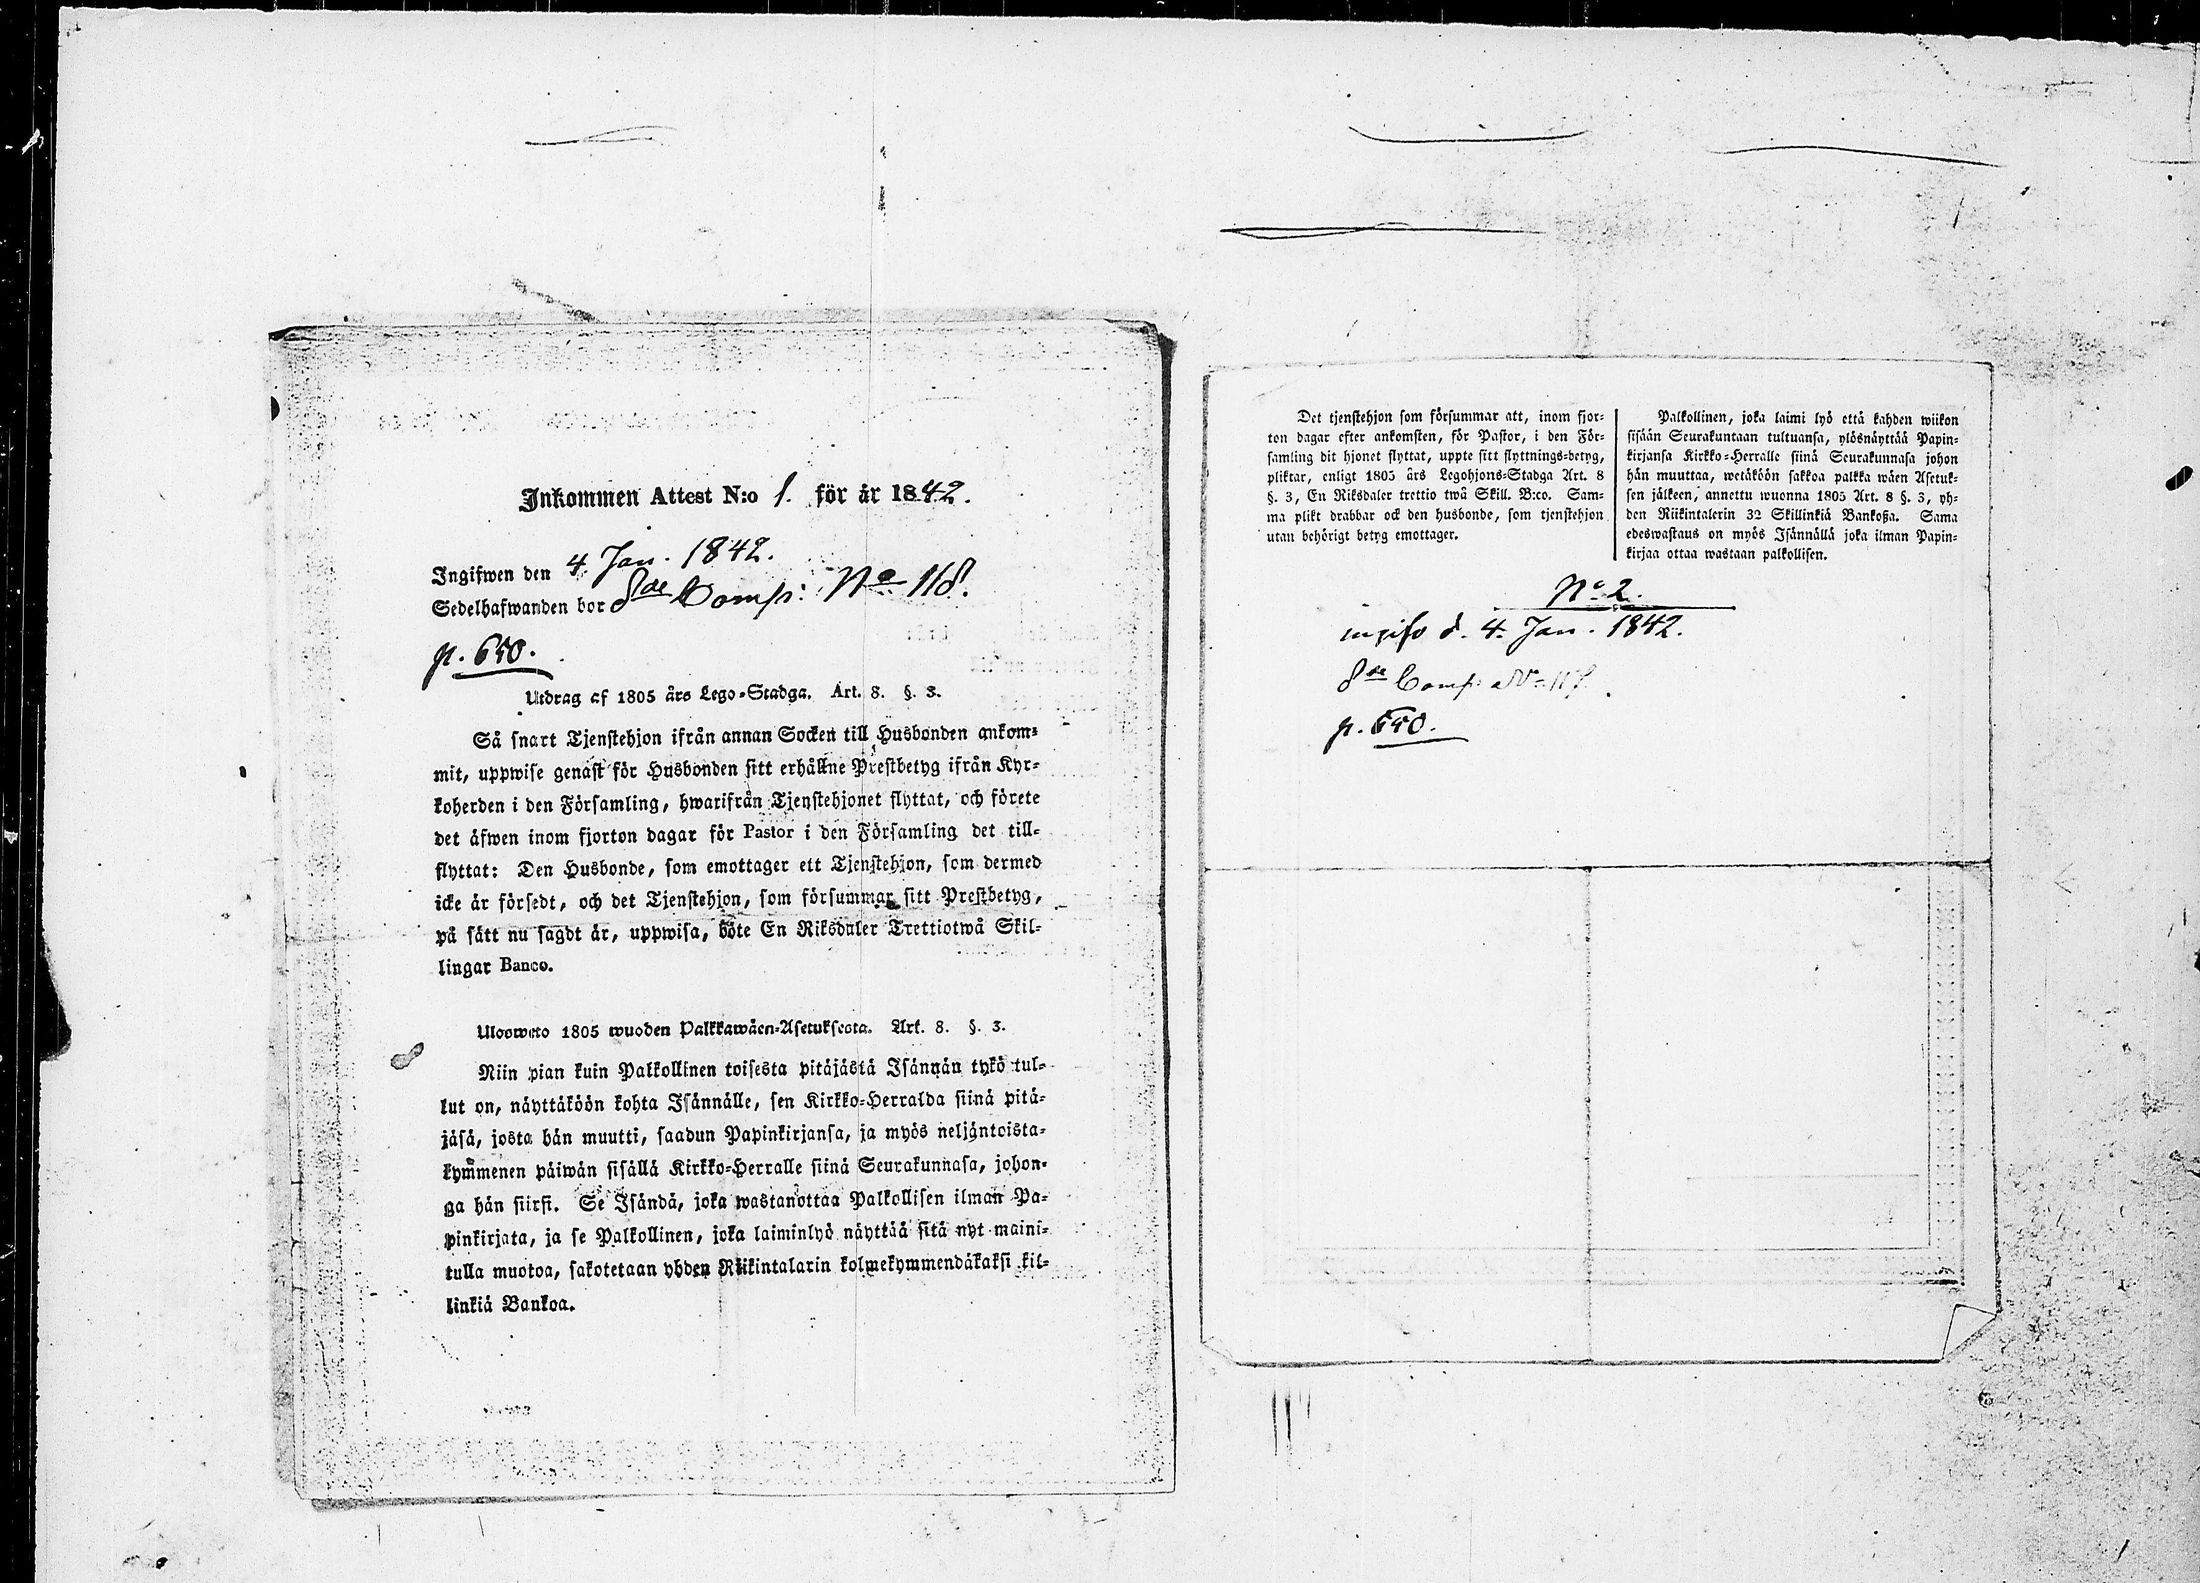 Inkommen Attest N:o 1. för år 1842.
Ingifwen den 4. Jan. 1842.
Sedelhafwanden bor 8de Comp: No 118.
p. 650.
Utdrag af 1805 års Lego-Stadga. Art. 8. §. 3.
Så snart Tjenstehjon ifrån annan Socken till Husbonden ankom-
mit, uppwise genast för Husbonden sitt erhållne Prestbetyg ifrån Kyr-
koherden i den Församling, hwarifrån Tjenstehjonet flyttat, och förete
det äfwen inom fjorton dagar för Pastor i den Församling det till-
flyttat: Den Husbonde, som emottager ett Tjenstehjon, som dermed
icke är försedt, och det Tjenstehjon, som försummar sitt Prestbetyg,
på sätt nu sagdt är, uppwisa, böte En Riksdaler Trettiotwå Skil-
lingar Banco.
Ulosweto 1805 wuoden Palkkawäen-Asetuksesta. Art. 8. §. 3.
Niin pian kuin Palkollinen toisesta pitäjästä Isännän tykö tul-
lut on, näyttäköön kohta Isännälle, sen Kirkko-Herralda siinä pitä-
jäsä, josta hän muutti, saadun Papinkirjansa, ja myös neljäntoista-
kymmenen päiwän sisällä Kirkko-Herralle siinä Seurakunnasa, johon-
ga hän siirsi. Se Isändä, joka wastanottaa Palkollisen ilman Pa-
pinkirjata, ja se Palkollinen, joka laiminlyö näyttää sitä nyt maini-
tulla muotoa, sakotetaan yhden Riikintalarin kolmekymmendäkaksi kil-
linkiä Bankoa.
Det tjenstehjon som försummar att, inom fjor-
ton dagar efter ankomsten, för Pastor, i den För-
samling dit hjonet flyttat, uppte sitt flyttnings-betyg,
pliktar, enligt 1805 års Legohjons-Stadga Art. 8
§. 3, En Riksdaler trettio twå Skill. B:co. Sam-
ma plikt drabbar ock den husbonde, som tjenstehjon
utan behörigt betyg emottager.
Palkollinen, joka laimi lyö että kahden wiikon
sisään Seurakuntaan tultuansa, ylösnäyttää Papin-
kirjansa Kirkko-Herralle siinä Seurakunnasa johon
hän muuttaa, wetäköön sakkoa palkka wäen Asetuk-
sen jälkeen, annettu wuonna 1805 Art. 8 §. 3, yh-
den Riikintalerin 32 Skillinkiä Bankoßa. Sama
edeswastaus on myös Isännällä joka ilman Papin-
kirjaa ottaa wastaan palkollisen.
No 2.
ingifv d. 4. Jan. 1842.
8de Comp: No 118.
p. 650.